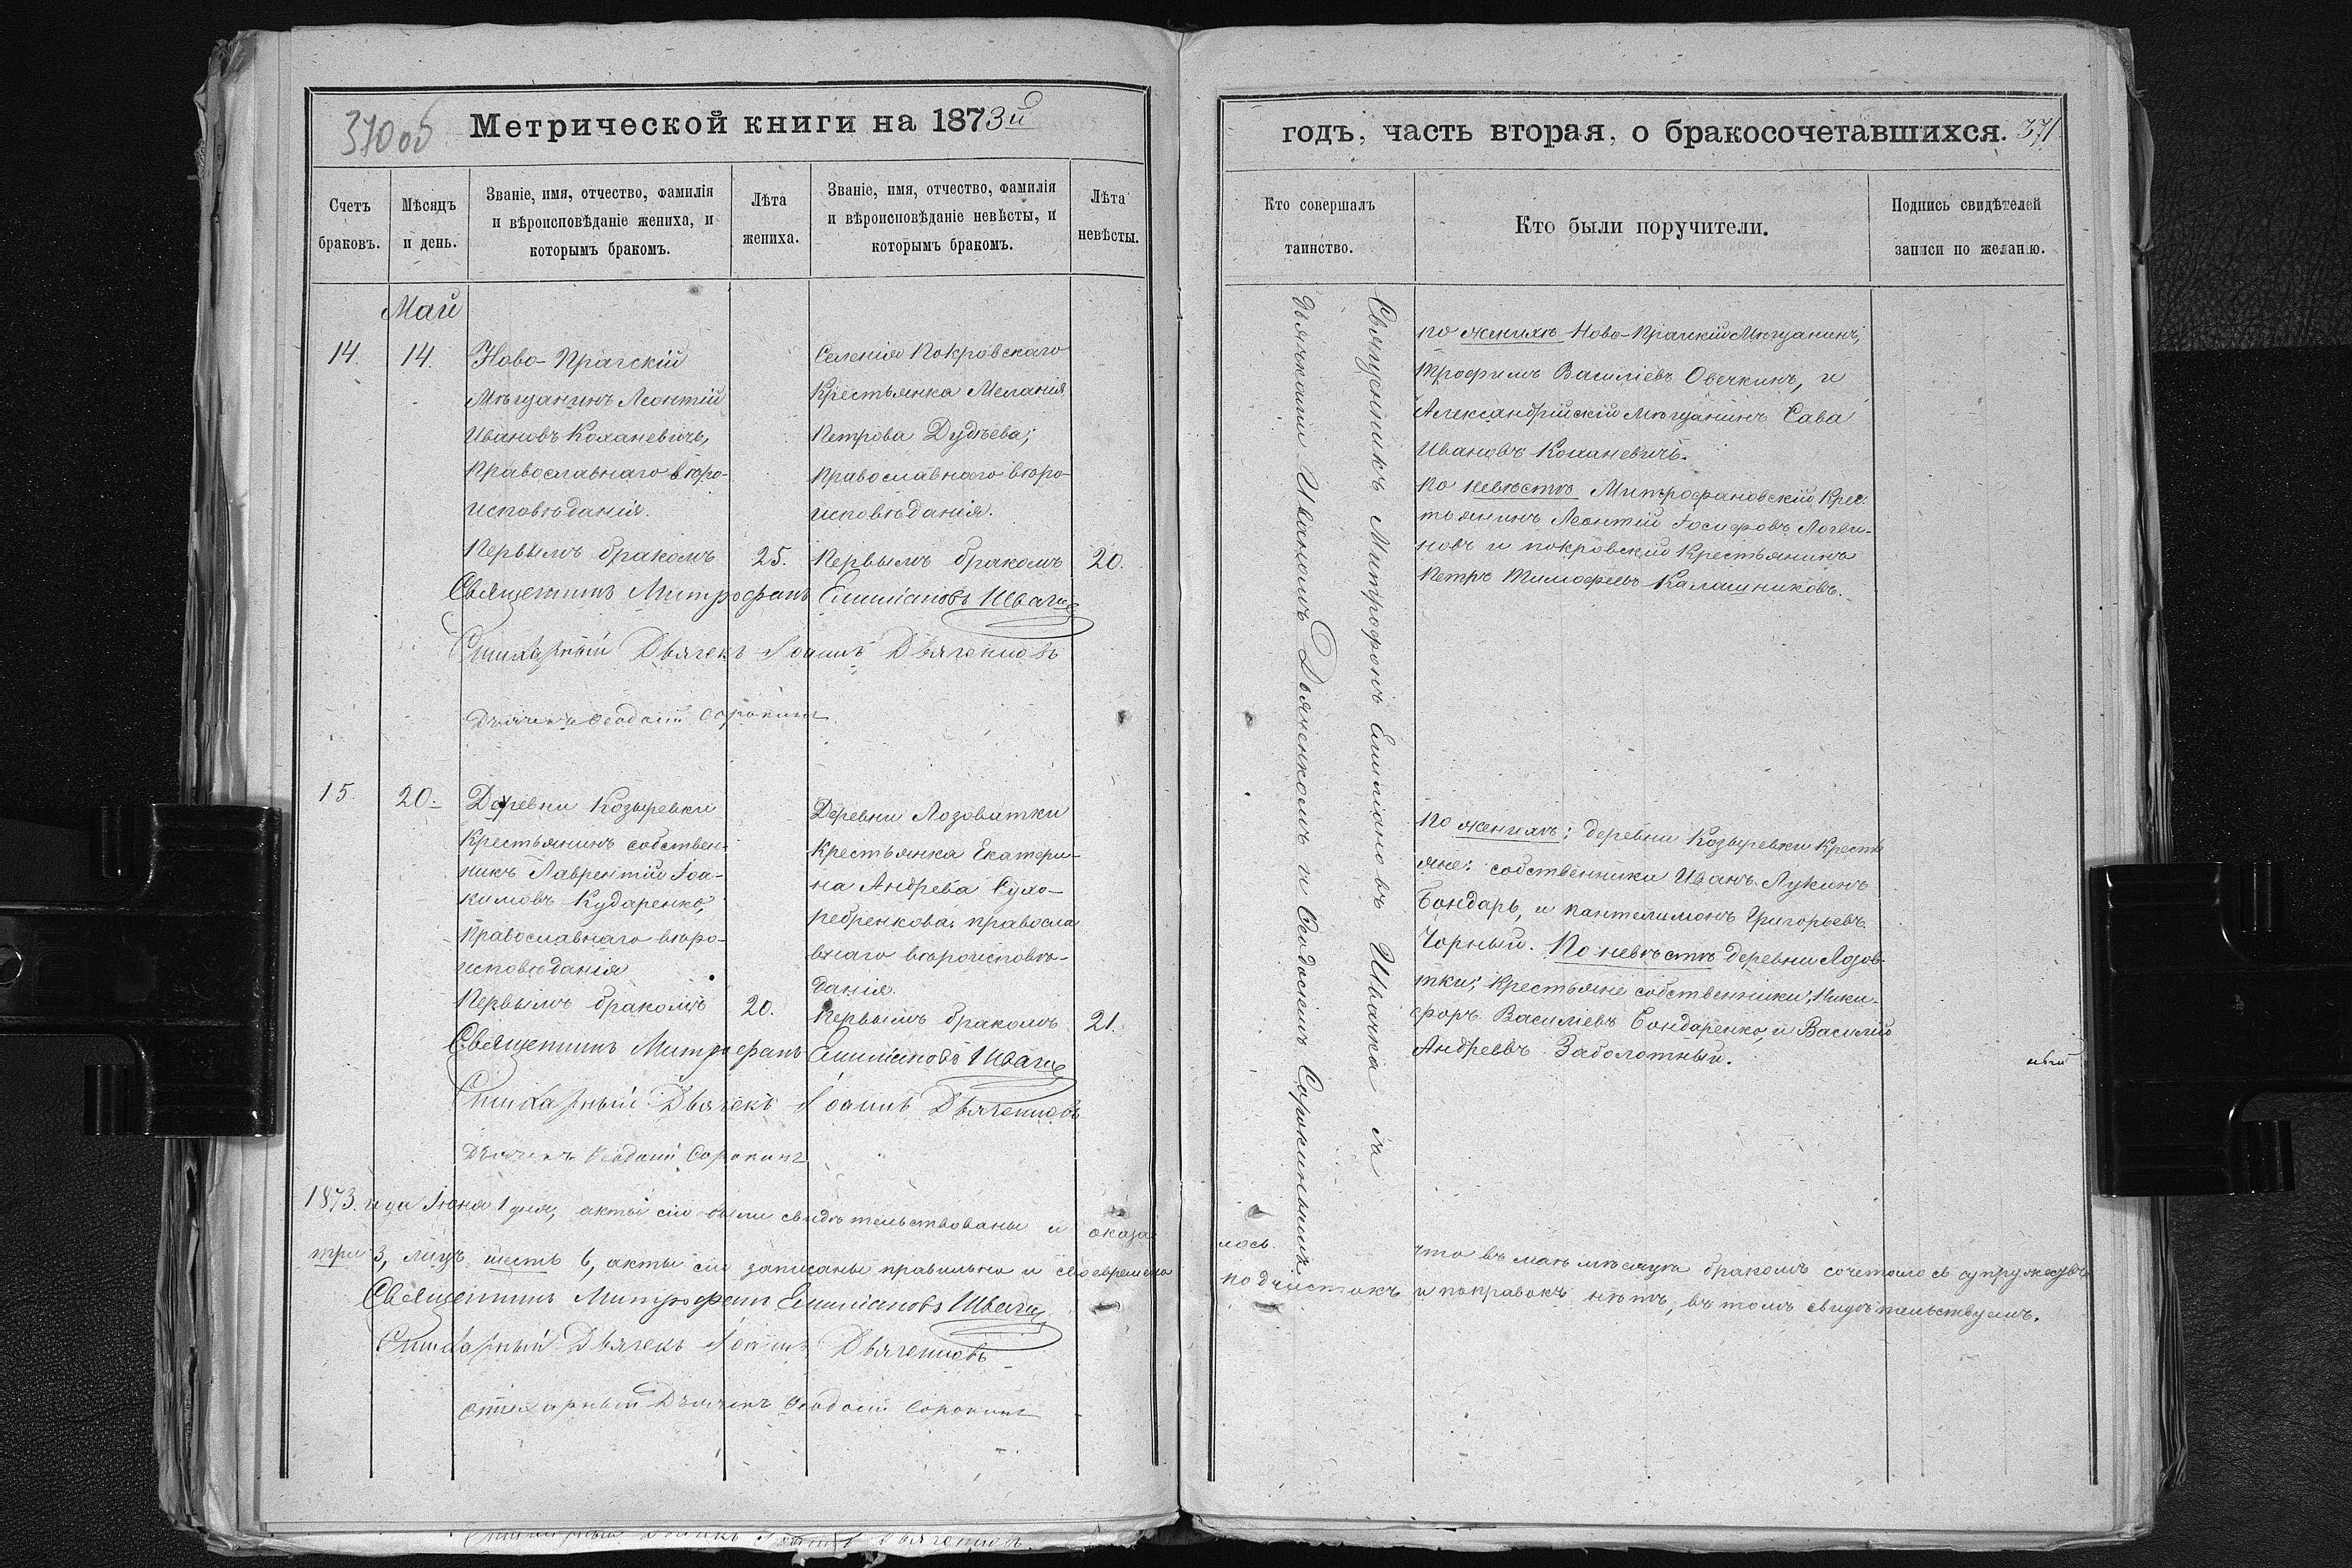 370об
Метрической книги на 1873й
Счетъ браковъ.
Мѣсяцъ и день.
Званіе, имя, отчество, фамилія
и вѣроисповѣданіе жениха, и
которымъ бракомъ.
Лѣта
жениха.
Званіе, имя, отчество, фамилія
и вѣроисповѣданіе невѣсты, и
которымъ бракомъ.
Лѣта
невѣсты.
Май
14.
14.
Ново-Прагскій
Мѣщанинъ Леонтій
Ивановъ Коханевичъ,
Православнаго вѣро-
исповѣданія.
Первымъ бракомъ
25.
Селенія Покровскаго
Крестьянка Меланія
Петрова Дудѣева;
Православнаго вѣро-
исповѣданія.
Первымъ бракомъ
20.
Священникъ Митрофанъ Емиліановъ Швачка
Стихарный Дьячекъ Іоаннъ Дьяченковъ
Дьячекъ Ѳеодосій Сорокинъ
15
20.
Деревни Козыревки
Крестьянинъ собствен-
никъ Лаврентій Іоа-
кимовъ Кударенко,
Православнаго вѣро-
исповѣданія
Первымъ бракомъ
20.
Деревни Лозоватки
Крестьянка Екатери-
на Андреева Сухо-
ребренкова; правосла
внаго вѣроисповѣ-
данія.
Первымъ бракомъ
21.
Священникъ Митрофанъ Емиліановъ Швачка
Стихарный Дьячекъ Іоаннъ Дьяченковъ
Дьячекъ Ѳеодосій Сорокинъ
1873. года Іюня 1 дня, акты сіи были свидѣтельствованы и оказа
три 3, лицъ шесть 6, акты сіи записаны правильно и своевременно
Священникъ Митрофанъ Емиліановъ Швачка
Стихарный Дьячекъ Іоаннъ Дьяченковъ
Стихарный Дьячекъ Ѳеодосій Сорокинъ
годъ, часть вторая, о бракосочетавшихся. 371
Кто совершалъ
таинство.
Кто были поручители.
Подпись свидѣтелей
записи по желанію.
Священникъ Митрофанъ Емиліановъ Швачка съ
дьячками Иваномъ Дьяченкомъ и Ѳеодосіемъ Сорокинымъ.
по женихѣ Ново-Прагскій Мѣщанинъ,
Трофимъ Василіевъ Овечкинъ, и
Александрійскій Мѣщанинъ Сава
Ивановъ Коханевичъ.
по невѣстѣ Митрофановскій Крес-
тьянинъ Леонтій Іосифовъ Логви-
новъ и покровскій Крестьянинъ
Петръ Тимофеевъ Калашниковъ.
по женихѣ: деревни Козыревки Кресть
яне: собственники Иванъ Лукинъ
Бондарь, и Пантелимонъ Григорьевъ
Чорный. По невѣстѣ деревни Лозов-
тки; Крестьяне собственники; Ники-
форъ Василіевъ Бондаренко, и Василій
Андреевъ Заболотный.
лось что въ маѣ мѣсяцѣ бракомъ сочеталось супружествъ
подчистокъ и поправокъ нѣтъ, въ томъ свидѣтельствуемъ.